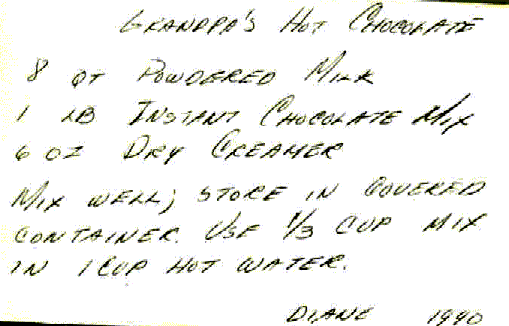 GRANDPA'S HOT CHOCOLATE
8 QT POWDERED MILK
1 LB INSTANT CHOCOLATE MIX
6 OZ DRY CREAMER
MIX WELL; STORE IN COVERED
CONTAINER. USE 1/3 CUP MIX
IN 1 CUP HOT WATER.
DIANE 1990